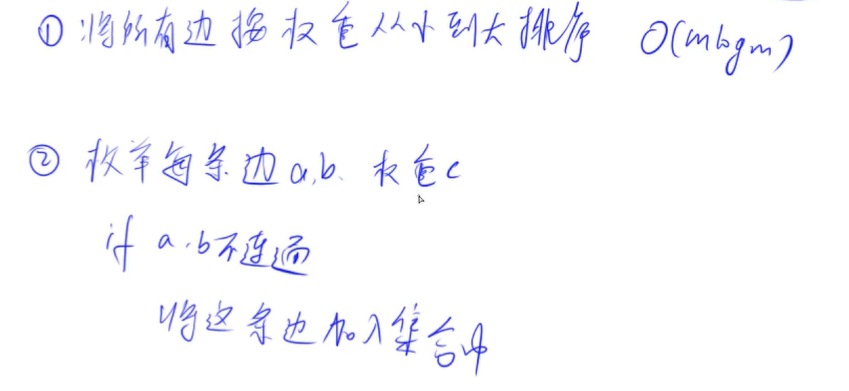 ① 将所有边按权重从小到大排序 O(mlogm)
② 枚举每条边a,b、权重c
if a,b不连通
将这条边加入集合中